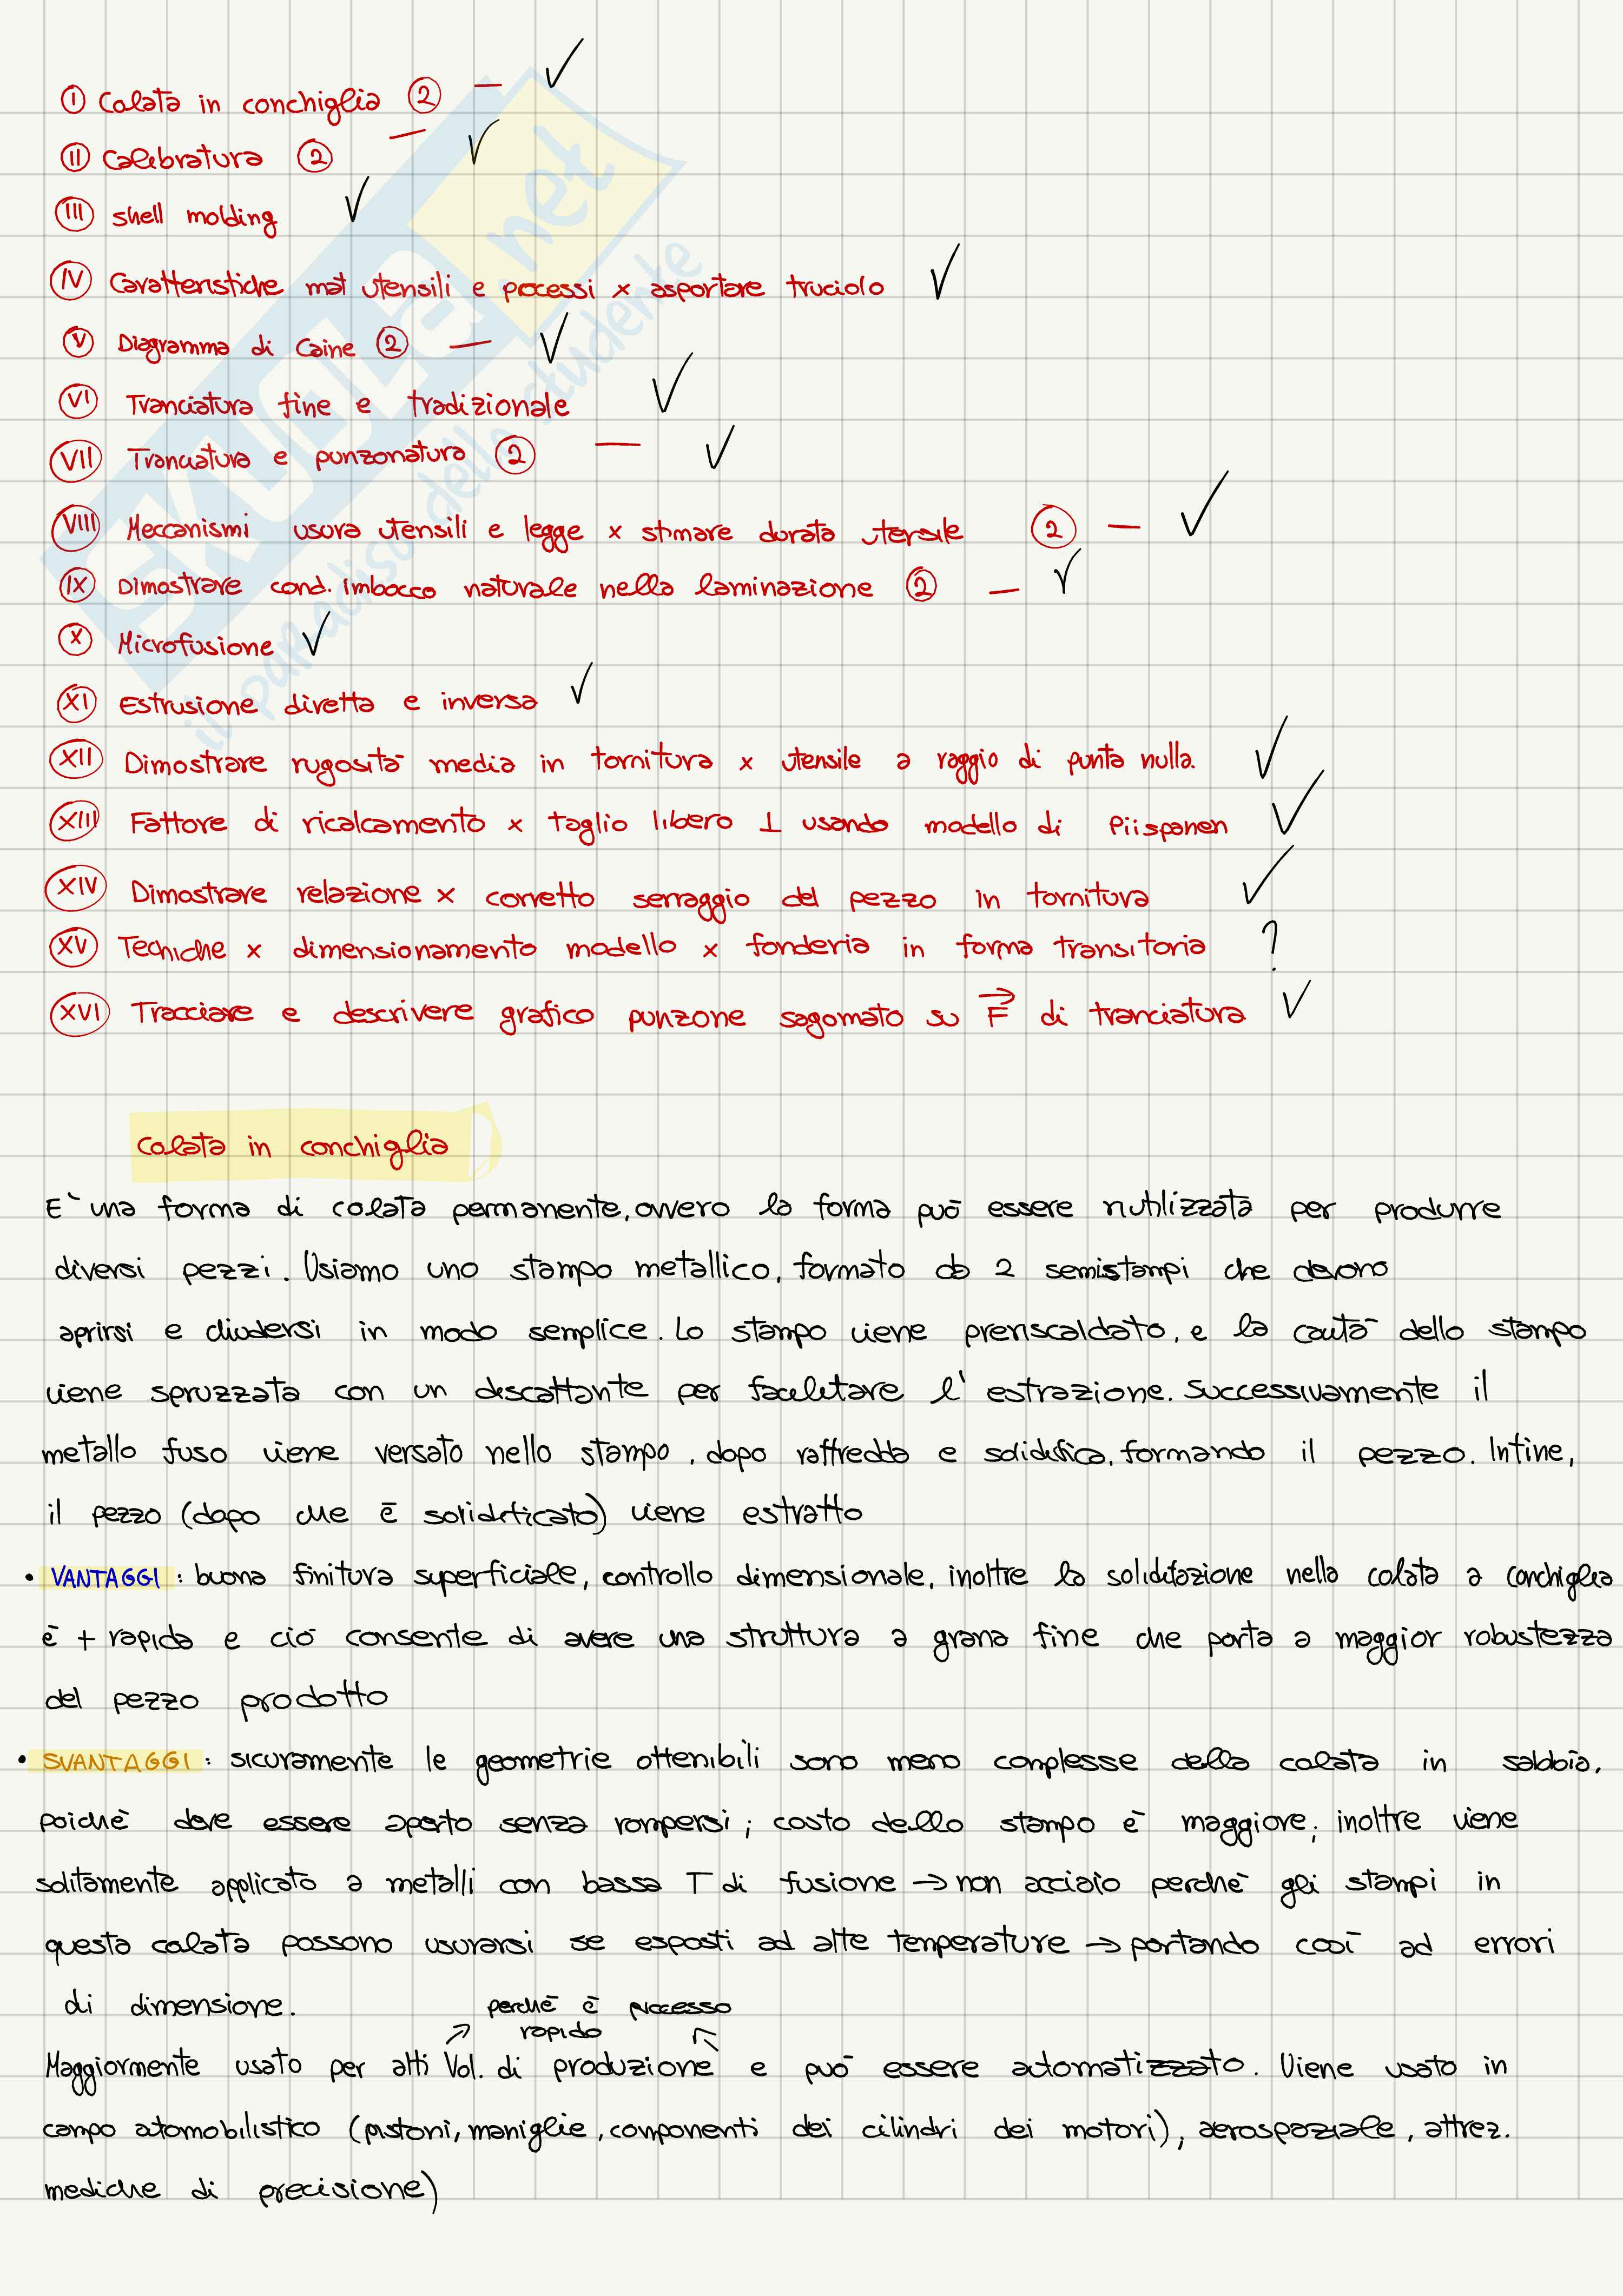 I Calata in conchiglia 2 — ✓
II Calibratura 2 — ✓
III shell molding ✓
IV Caratteristiche mat utensili e processi x asportare truciolo ✓
V Diagramma di Caine 2 — ✓
VI Tranciatura fine e tradizionale ✓
VII Tranciatura e punzonatura 2 — ✓
VIII Meccanismi usura utensili e legge x stimare durata utensile 2 — ✓
IX Dimostrare cond. imbocco naturale nella laminazione 2 — ✓
X Microfusione ✓
XI Estrusione diretta e inversa ✓
XII Dimostrare rugosità media in tornitura x utensile a raggio di punta nulla. ✓
XIII Fattore di ricalcamento x taglio libero ⊥ usando modello di Piispanen ✓
XIV Dimostrare relazione x corretto serraggio del pezzo in tornitura ✓
XV Techiche x dimensionamento modello x fonderia in forma transitoria ?
XVI Tracciare e descrivere grafico punzone sagomato su F⃗ di tranciatura ✓
skuola.net
il paradiso dello studente
Calata in conchiglia
E' una forma di colata permanente, ovvero la forma può essere riutilizzata per produrre
diversi pezzi. Usiamo uno stampo metallico, formato da 2 semistampi che devono
aprirsi e chiudersi in modo semplice. Lo stampo viene preriscaldato, e la cavità dello stampo
viene spruzzata con un discattante per facilitare l' estrazione. Successivamente il
metallo fuso viene versato nello stampo, dopo raffredda e solidifica, formando il pezzo. Infine,
il pezzo (dopo che è solidificato) viene estratto
• VANTAGGI: buona finitura superficiale, controllo dimensionale, inoltre la solidifazione nella colata a conchiglia
è + rapida e ciò consente di avere una struttura a grana fine che porta a maggior robustezza
del pezzo prodotto
• SVANTAGGI: sicuramente le geometrie ottenibili sono meno complesse della calata in sabbia,
poichè deve essere aperto senza rompersi; costo dello stampo è maggiore; inoltre viene
solitamente applicato a metalli con bassa T di fusione → non acciaio perchè gli stampi in
questa calata possono usurarsi se esposti ad alte temperature → portando così ad errori
di dimensione.
perchè è processo
rapido
Maggiormente usato per alti Vol. di produzione e può essere automatizzato. Viene usato in
campo automobilistico (pistoni, maniglie, componenti dei cilindri dei motori), aerospaziale, attrez.
mediche di precisione)